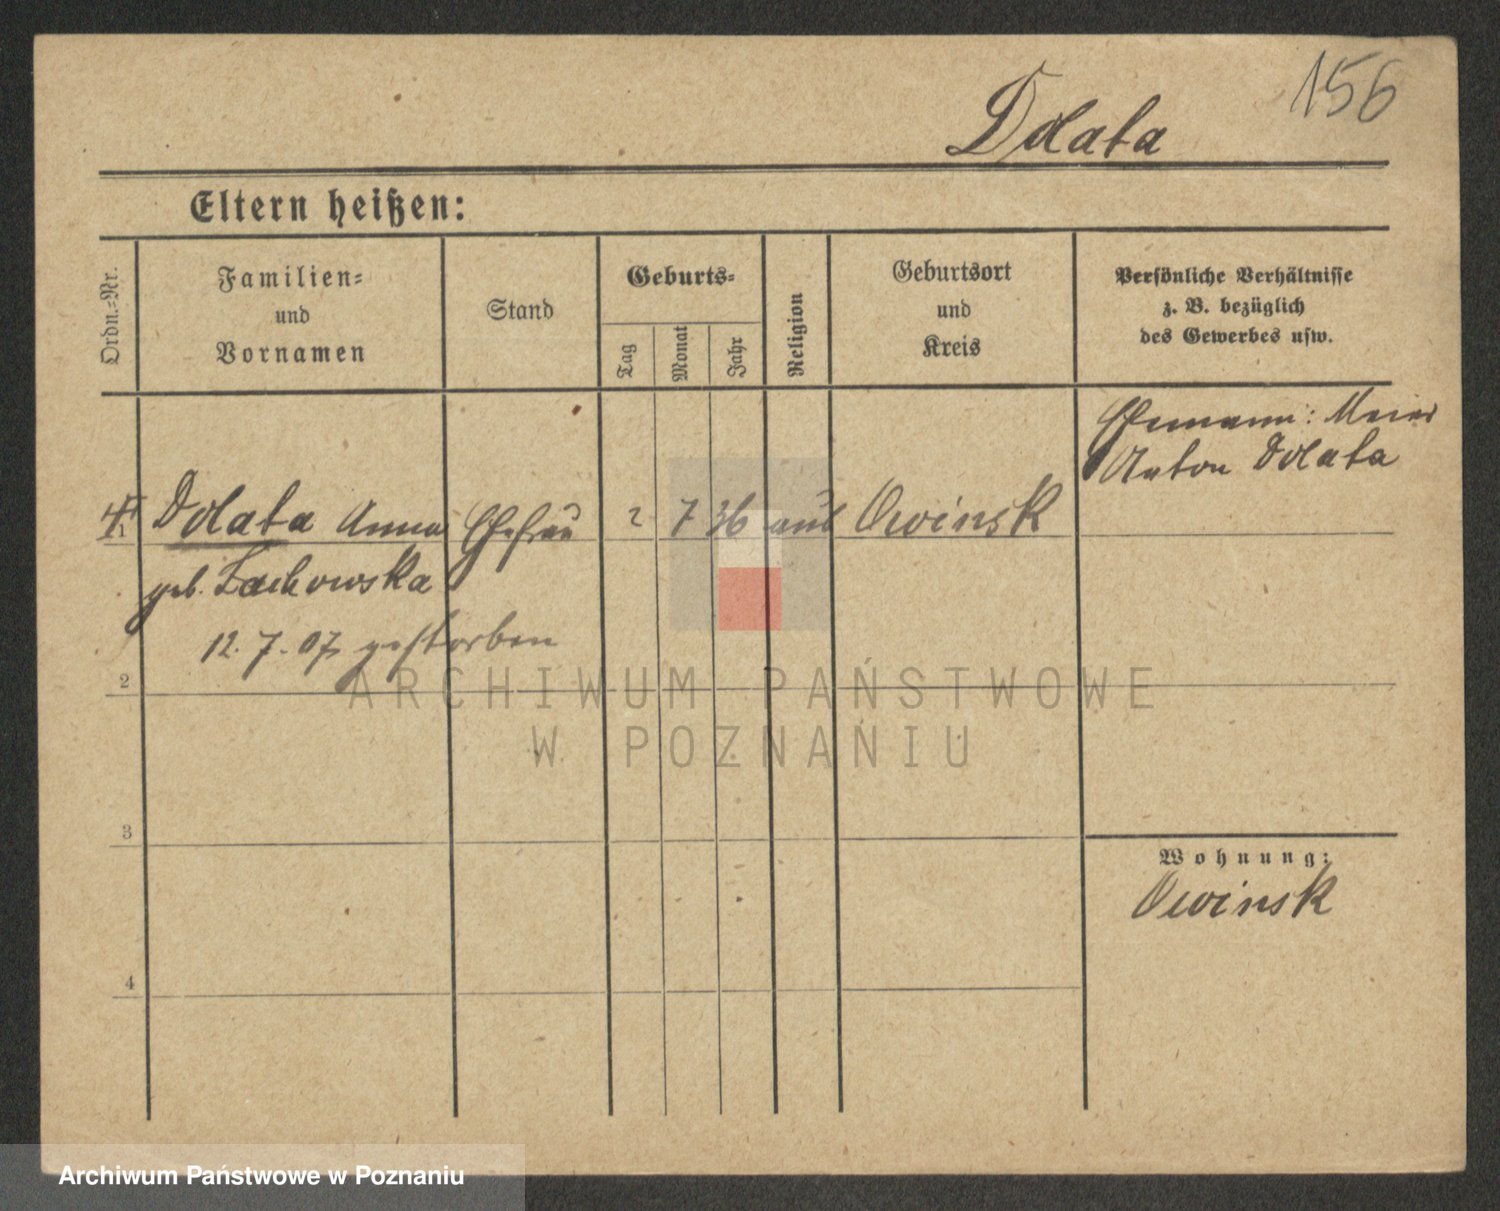 156
Dolata
Eltern heißen:
Ordn.-Nr.
Familien-
und
Vornamen
Stand
Geburts-
Tag
Monat
Jahr
Religion
Geburtsort
und
Kreis
Persönliche Verhältnisse
z. B. bezüglich
des Gewerbes usw.
Ehemann: Meier
Anton Dolata
1
Dolata Anna Ehefrau 2 7 36 aus Owinsk
geb. Lachowska
12. 7. 07 gestorben
2
3
4
Wohnung:
Owinsk
ARCHIWUM PAŃSTWOWE
W POZNANIU
Archiwum Państwowe w Poznaniu